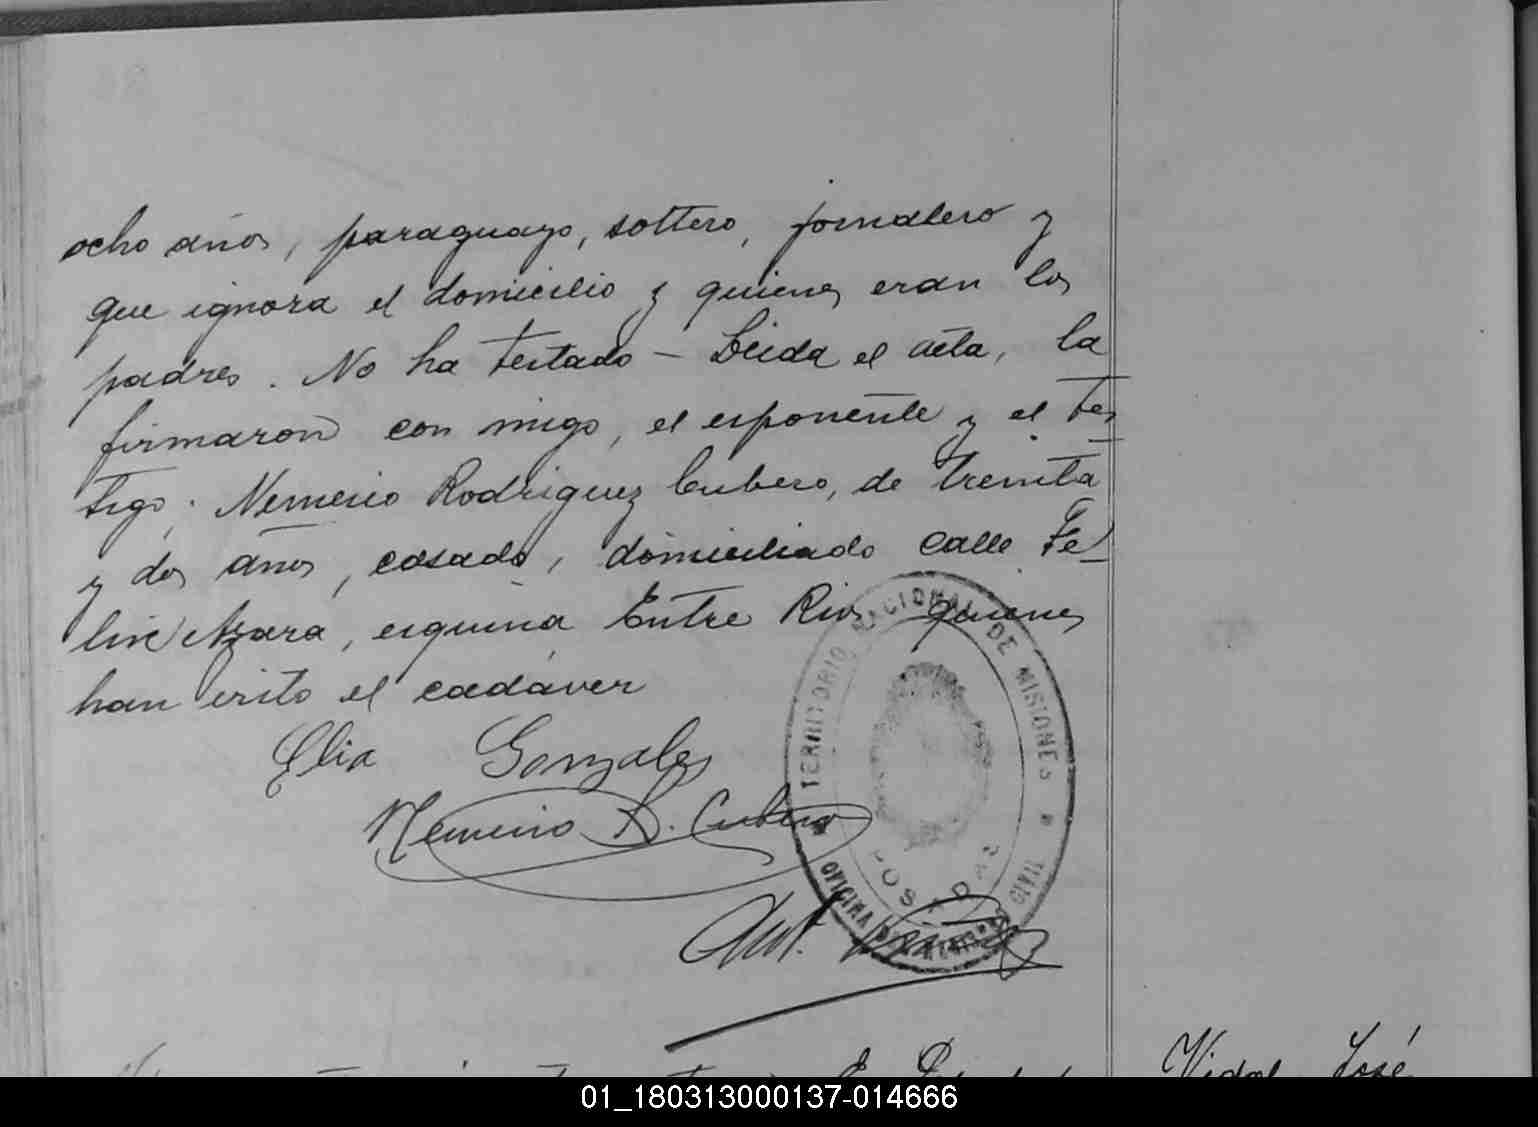 ocho años, paraguayo, soltero, jornalero y
que ignora el domicilio y quienes eran los
padres. No ha testado — Leida el acta, la
firmaron con migo, el esponente y el tes
tigo; Nemesio Rodriguez Cubero, de treinta
y dos años, casado, domiciliado calle Fe-
lix Azara, esquina Entre Rios quienes
han visto el cadáver
Elia Gonzales
Nemesio R. Cubero
TERRITORIO NACIONAL DE MISIONES
OFICINA CIVIL
POSADAS
Ant.
Vidal José
01_180313000137-014666